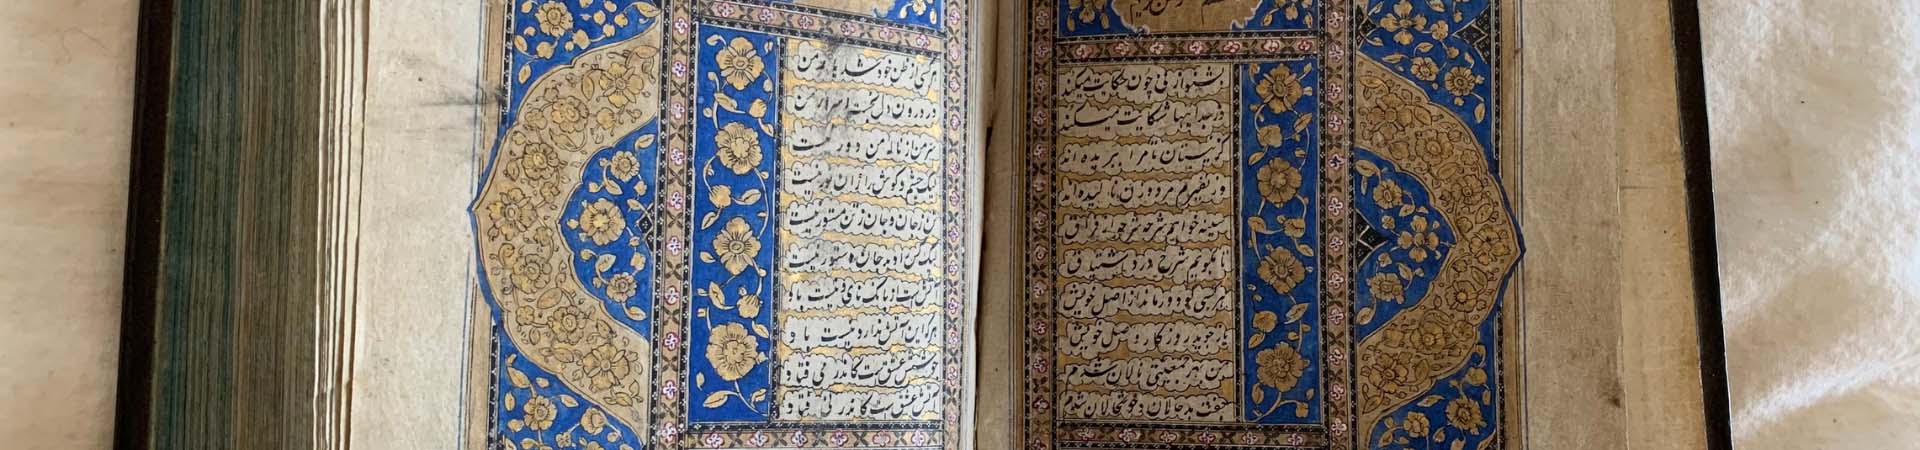 بشنو از نی چون حکایت میکند
وز جداییها شکایت میکند
کز نیستان تا مرا ببریده اند
وز نفیرم مرد و زن نالیده اند
سینه خواهم شرحه شرحه از فراق
تا بگویم شرح درد اشتیاق
هر کسی کو دور ماند از اصل خویش
باز جوید روزگار وصل خویش
من بهر جمعیتی نالان شدم
جفت بدحالان و خوشحالان شدم
هر کسی از ظن خود شد یار من
در درون دل نجست اسرار من
سر من از ناله من دور نیست
لیک چشم و گوش را آن نور نیست
تن ز جان و جان ز تن مستور نیست
لیک کس را دید جان دستور نیست
آتش است این بانک نای و نیست باد
هر که این آتش ندارد نیست باد
جوشش عشق است کاندر می فتاد
آتش عشق است کاندر نی فتاد